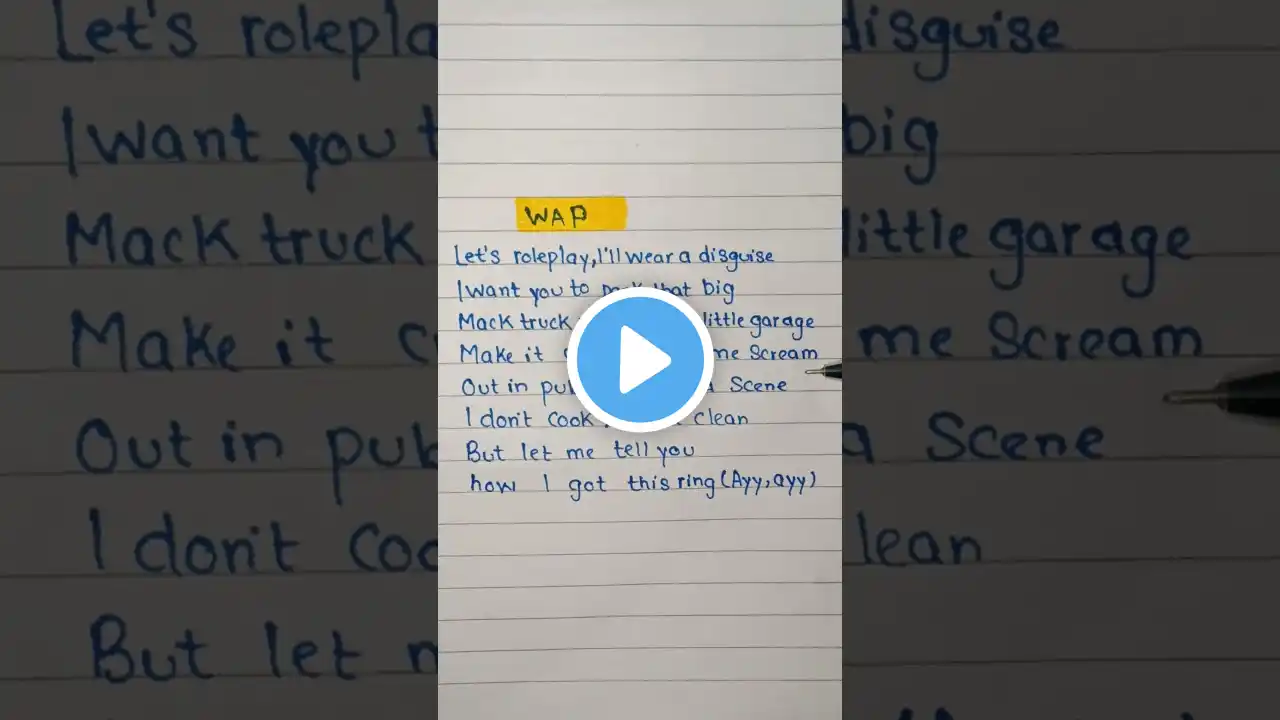 WAP
Let's roleplay, I'll wear a disguise
I want you to that big
Mack truck little garage
Make it me Scream
Out in Scene
I don't Cook clean
But let me tell you
how I got this ring (Ayy, ayy)